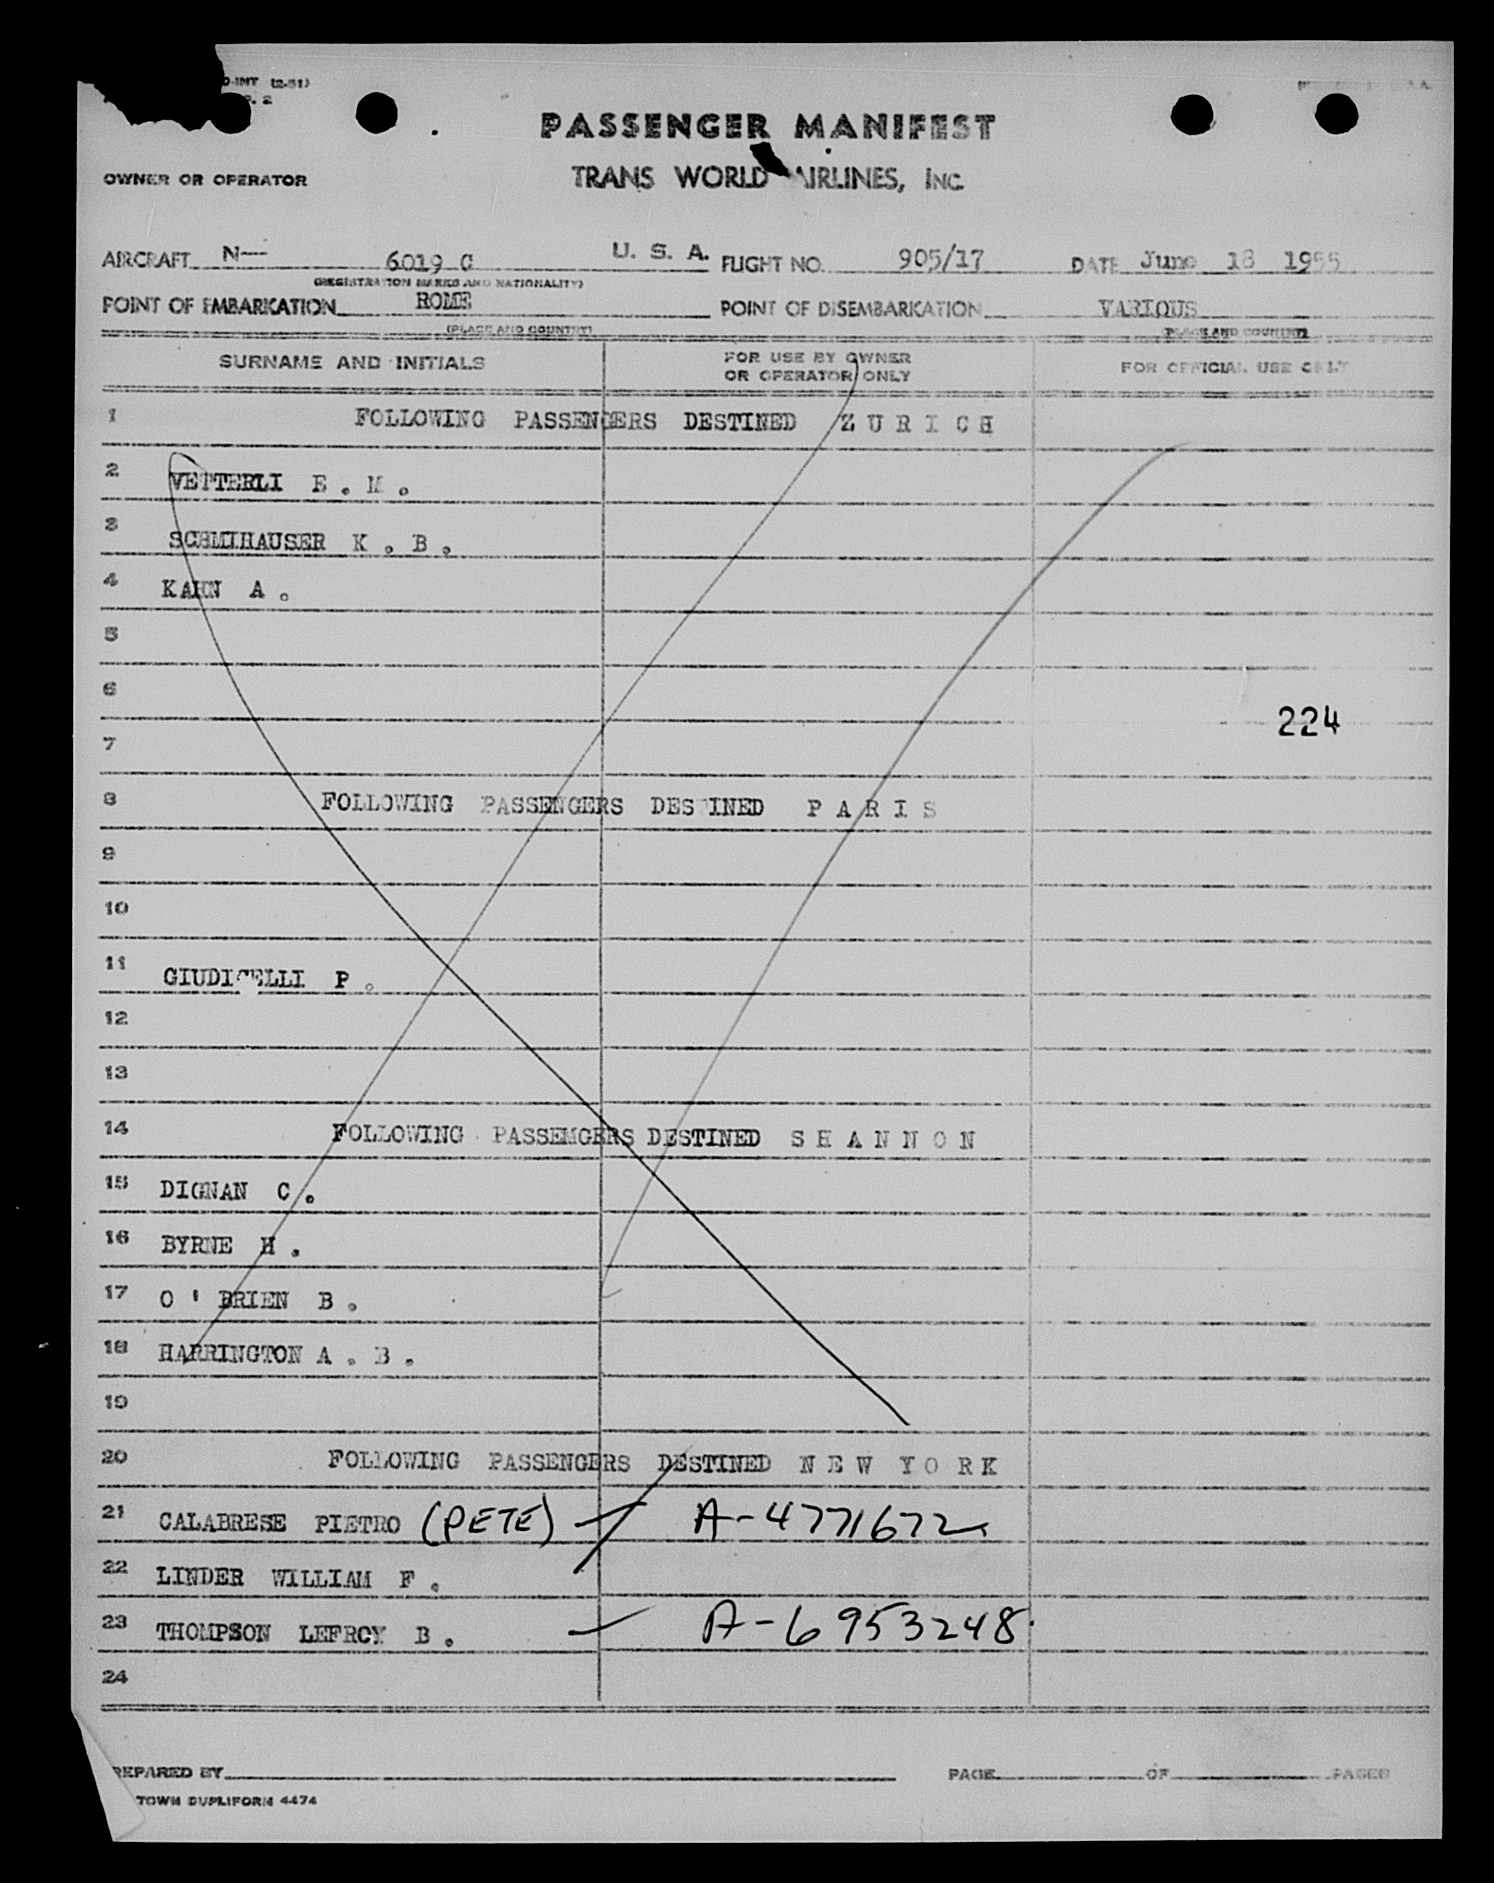 O-INT (2-51)
P. 2
PASSENGER MANIFEST
OWNER OR OPERATOR
TRANS WORLD AIRLINES, INC.
AIRCRAFT N— 6019 C U. S. A. FLIGHT NO. 905/17 DATE June 18 1955
(REGISTRATION MARKS AND NATIONALITY)
POINT OF EMBARKATION ROME POINT OF DISEMBARKATION VARIOUS
(PLACE AND COUNTRY) (PLACE AND COUNTRY)
SURNAME AND INITIALS FOR USE BY OWNER OR OPERATOR ONLY FOR OFFICIAL USE ONLY
1 FOLLOWING PASSENGERS DESTINED Z U R I C H
2 VETTERLI E . M .
3 SCHMIHAUSER K . B .
4 KAHN A .
5
6
224
7
8 FOLLOWING PASSENGERS DESTINED P A R I S
9
10
11 GIUDICELLI P .
12
13
14 FOLLOWING PASSEMGERS DESTINED S H A N N O N
15 DIGNAN C .
16 BYRNE H .
17 O ' BRIEN B .
18 HARRINGTON A . B .
19
20 FOLLOWING PASSENGERS DESTINED N E W Y O R K
21 CALABRESE PIETRO (PETE) A-4771672
22 LINDER WILLIAM F .
23 THOMPSON LEFROY B . A-6953248
24
PREPARED BY PAGE OF PAGES
TOWN DUPLIFORM 4474